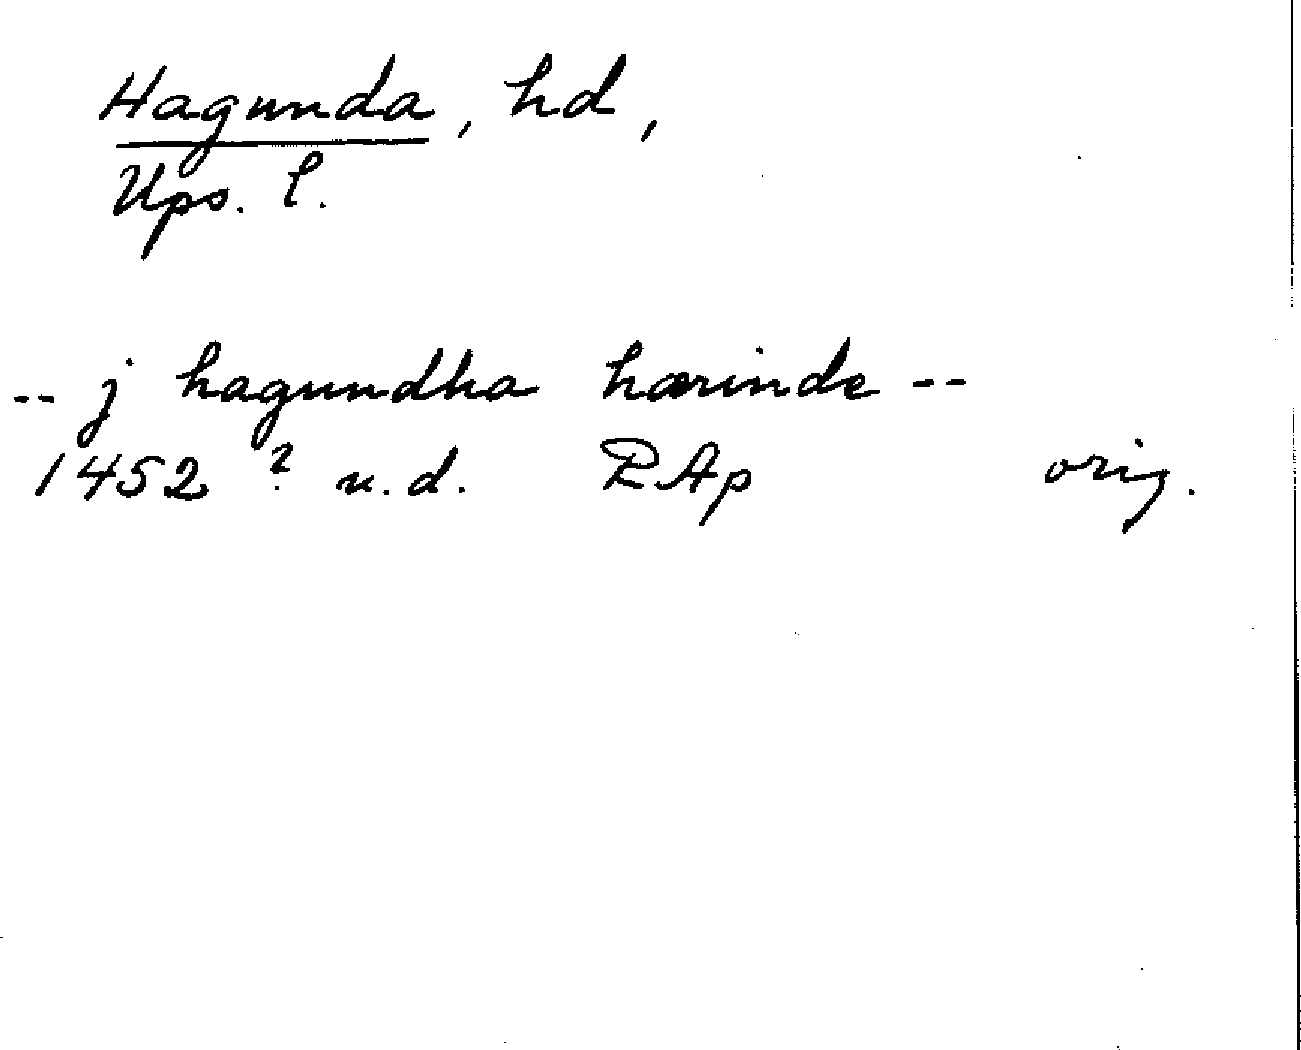 Hagunda, hd,
Ups. l.
-- j hagundha hærinde --
1452 ? u.d. RAp orig.